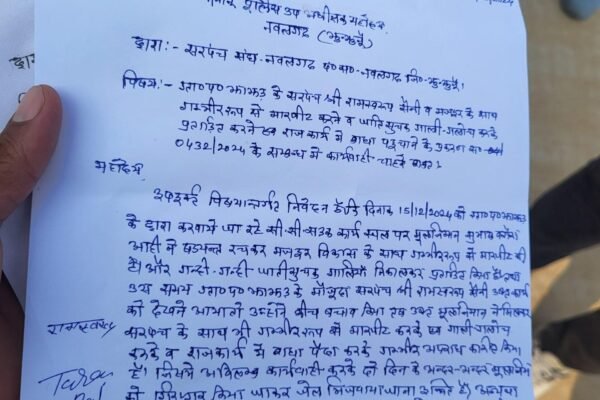 श्रीमान पुलिस उप अधीक्षक महोदय
नवलगढ (झुन्झुनूं)
द्वारा:- सरपंच संघ-नवलगढ प०स०-नवलगढ जि०-झुन्झुनूं।
विषय:- ग्रा०प०झाझड के सरपंच श्री रामस्वरूप सैनी व मजदूर के साथ
गम्भीर रूप से मारपीट करने व जातिसूचक गाली-गलोच करके
प्रताडित करने एवं राजकार्य मे बाधा पहुचाने के प्रकरण स०
0432/2024 के सम्बन्ध मे कार्यवाही चाहने बाबत।
महोदय
उपरोक्त विषयान्तर्गत निवेदन है कि दिनांक 15/12/2024 को ग्रा०प०झाझड
के द्वारा करवाये जा रहे सी.सी.सडक कार्य स्थल पर मुलजिमान सुभाष
आदी ने षडयन्त्र रचकर मजदूर विकास के साथ गम्भीर रूप से मारपीट की
है। और गन्दी-गन्दी जातीसूचक गालिया निकालकर प्रताडित किया है। तथा
उस समय ग्रा०प०झाझड के मौजूदा सरपंच श्री रामस्वरूप सैनी उक्त कार्य
को देखने आये तो उन्होने बीच बचाव किया तब उक्त मुलजिमान ने मिलकर
सरपंच के साथ भी गम्भीर रूप से मारपीट करके एवं गाली गलोच
करके व राजकार्य मे बाधा पैदा करके गम्भीर अपराध कारित किया
है। जिसमे अविलम्ब कार्यवाही करके दो दिन के अन्दर-अन्दर मुलजिमो
को गिरफ्तार किया जाकर जेल भिजवाया जाना उचित है। अन्यथा
रामस्वरूप
Tara
द्वारा